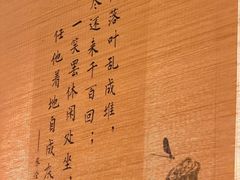 落叶乱成堆，
尽还来千百回；
一笑罢休闲处坐，
任他着地自成灰